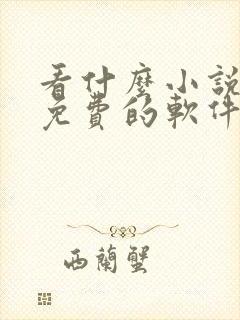 看什麼小說
免費的軟件
西蘭蟹